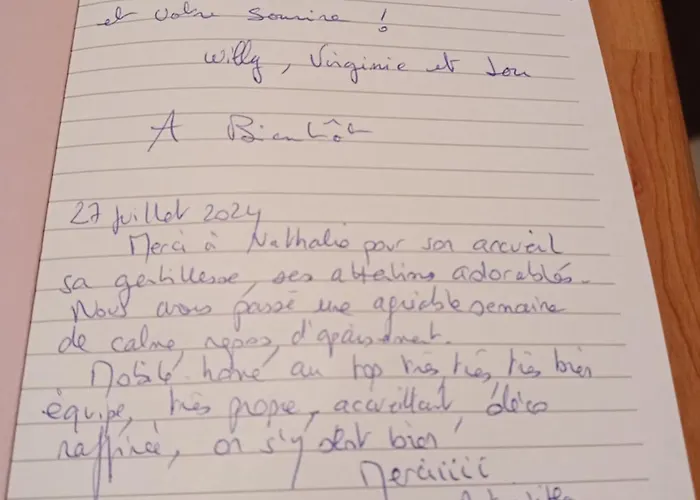 et votre sourire !
Willy, Virginie et Lou
A Bientôt
27 juillet 2024
Merci à Nathalie pour son accueil
sa gentillesse, ses attentions adorables.
Nous avons passé une agréable semaine
de calme, repos, d'apaisement.
Mobile home au top très, très, très bien
équipé, très propre, accueillant, déco
raffinée, on s'y sent bien
Merciiiii